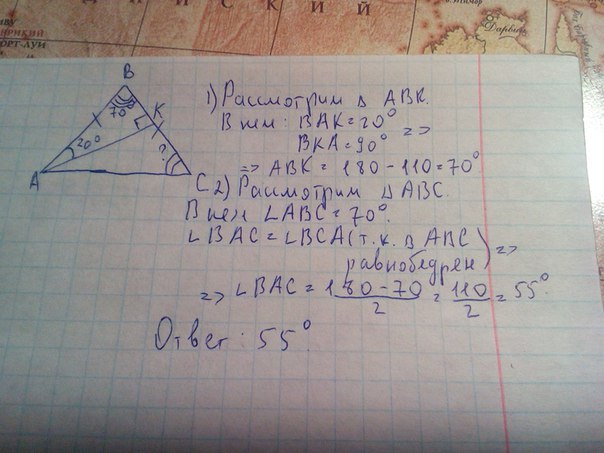 ИЙСКИЙ
Дарвин
ОРТ-ЛУИ
B
70°
K
20°
?
A
C
1) Рассмотрим Δ ABK.
В нем: BAK=20°
BKA=90° =>
=> ABK = 180-110=70°
2) Рассмотрим ΔABC.
В нем ∠ABC=70°.
∠BAC=∠BCA(т.к. в ABC
равнобедрен) =>
=> ∠BAC = 180-70/2 = 110/2 = 55°
Ответ: 55°.